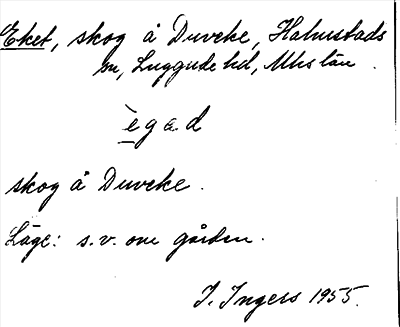 Eket, skog å Duveke, Halmstads
sn, Luggude hd, Mhs län.
ègad
skog å Duveke.
Läge: s.v. om gården.
I. Ingers 1955.